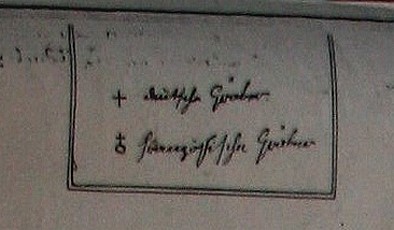 + deutsche Gräber
♁ französische Gräber